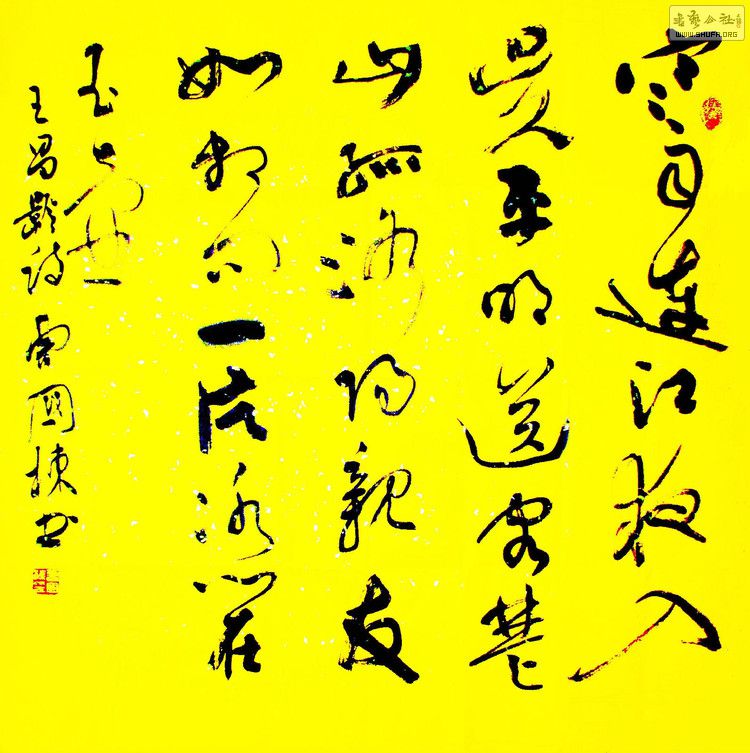 書藝公社
WWW.SHUFA.ORG
寒雨連江夜入
吴平明送客楚
山孤洛阳親友
如相问一片冰心在
玉壶
王昌齡诗 國棟书